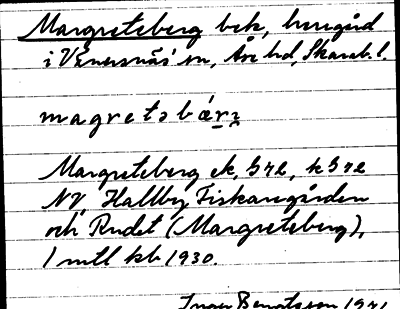 Margreteberg bek, herrgård
i Vänersnäs' sn, Åse hd, Skarab. l.
magretəbær̰i̯
Margreteberg ek, 5 r 2, k 3 r 2
NV, Hallby Fiskaregården
och Rudet (Margreteberg),
1 mtl kb 1930.
Inger Bengtsson 1971